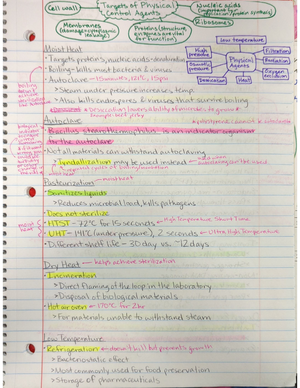 Cell wall
Targets of Physical Control Agents
Nucleic acids
(important for replication/protein synthesis)
Membranes
(damage=cytoplasmic leakage)
Proteins (structure/enzymes are vital for function)
Ribosomes
Low temperature
High pressure
Filtration
Osmotic pressure
Physical Agents
Radiation
Desiccation
Heat
Oxygen
Moist Heat
- Targets proteins, nucleic acids
- Boiling- kills most bacteria & viruses
- Autoclave- 15 minutes, 121°C, 15psi
> Steam under pressure increases temp.
> Also kills endospores & viruses that survive boiling
Autoclave
- Bacillus stearothermophilus is an indicator organism for the autoclave
- Not all materials can withstand autoclaving
> Tyndallization may be used instead
Pasteurization
- Sanitizes liquids
> Reduces microbial load, kills pathogens
- Does not sterilize
- HTST - 72°C for 15 seconds
High Temperature Short Time
- UHT - 141°C (under pressure), 2 seconds
Ultra High Temperature
- Different shelf life - 30 day vs. ~12 days
Dry Heat
helps achieve sterilization
- Incineration
> Direct flaming of the loop in the laboratory
> Disposal of biological materials
- Hot air oven
170°C for 2hr
> For materials unable to withstand steam
Low Temperature
- Refrigeration
doesn't kill but prevents growth
> Bacteriostatic effect
> Most commonly used for food preservation
> Storage of pharmaceuticals